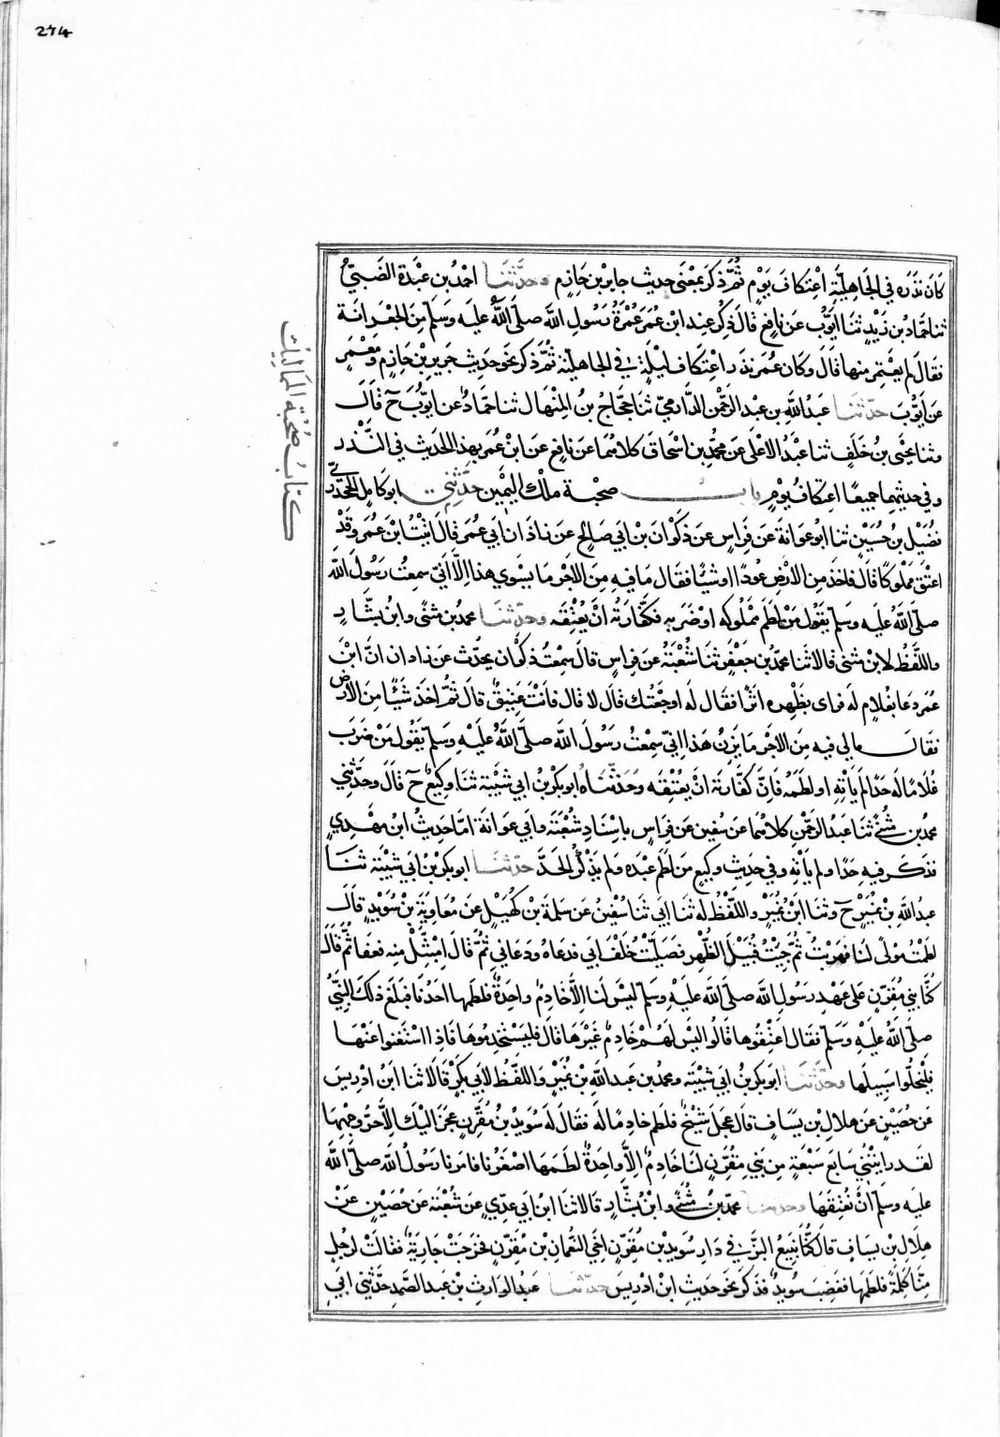 274
كَانَ نَذَرَه في الجَاهِلِيَّةِ اعْتِكافَ يَوْمٍ ثُمَّ ذكَرَ بمَعْنَى حديث جابر بْن حَازِمٍ وحَدَّثَنَا احْمَدُ بن عَبْدَةَ الضَّبِيُّ
ثنا حَمَّادُ بن زَيْدٍ ثنا ايُّوبُ عَن نَافِعٍ قَالَ ذُكِرَ عِند ابْن عُمَر عُمْرَةُ رَسُولِ اللَّه صلَّى اللَّهُ عليه وسَلَّم مِنَ الجِعْرَانَة
فقالَ لم يعْتَمِر منها قَالَ وكان عُمَر نذَر اعْتِكاف ليْلَةٍ في الجاهلية ثُمَّ ذكرَ نحوَ حَدِيث جَرير بْن حَازِمٍ ومَعْمَرٍ
عَن ايُّوبَ حدَّثَنا عَبدُ اللَّهِ بن عبد الرَّحْمن الدَّارِمِيّ ثنا حَجَّاج بنُ المِنْهَال ثنا حمَّادٌ عن ايُّوبَ ح قَالَ
وثنا يَحْيَى بنُ خَلَفٍ ثنا عبْدُ الاعْلَى عَن محمَّد بن اسْحَاقَ كلاهُمَا عن نَافِعٍ عَن ابْن عُمَر بهذا الحديث في النَّذْر
وفي حديثهِما جميعًا اعتِكافُ يَوْمٍ باب صحْبَة ملْك اليَمِين حَدَّثَنِي ابو كَامِل الجحْدَرِيّ
فُضَيْل بن حُسَيْنٍ ثنا ابُو عَوَانَةَ عَن فِرَاسٍ عَن ذَكْوَانَ بْن ابي صَالِحٍ عن زاذَان ابي عُمَر قَالَ اتَيْتُ ابْنَ عُمَر وقَدْ
اعْتَقَ مَمْلوكًا قَالَ فاخَذ مِنَ الأرْضِ عُودًا او شيئًا فقال مَا فِيهِ مِنَ الاجْرِ مَا يَسْوِي هذا الَّا انِّي سمِعْتُ رَسُولَ اللَّه
صلّى اللَّهُ علَيه وسَلّم يقُول مَن لَطَم مَمْلُوكه او ضَرَبه فكَفَّارَتُه انْ يُعْتِقَه وحَدَّثَنَا محمدُ بن مثنّى وابنُ بشَّار
واللَّفْظُ لابْن مثَنى قَالا ثنا محمَّدُ بن جَعْفَرٍ ثنا شُعْبَةُ عن فِراسٍ قالَ سمِعْتُ ذكْوَان يحدِّث عن زاذان انَّ ابْنَ
عُمر دعَا بغُلامٍ لَه فرأى بظَهْرِه اثَرًا فقَال لَه اوجَعْتُك قَالَ لا قَال فَانْتَ عَتِيقٌ قَالَ ثُمَّ اخَذَ شَيئًا مِنَ الأرْضِ
فقالَ مالي فيه مِنَ الاجْر مَا يَزِنُ هَذا انِّي سمِعْتُ رَسُولَ اللَّه صلَّى اللَّهُ علَيْهِ وسَلّم يقُول مَنْ ضَرَبَ
غُلامًا لَه حدًّا لَم يأتِه او لَطَمَه فاِنَّ كَفَّارَتَه انْ يعْتِقَه وحَدَّثَنَاه ابو بكْر بْنُ ابي شَيْبَة ثنا وكيعٌ ح قَالَ وحدَّثني
محمدُ بن مُثَنًّى ثنا عَبدُ الرَّحْمنِ كلاهُمَا عن سُفين عَن فِرَاسٍ باِسْنادِ شُعْبَة وابي عَوَانَة امَّا حَدِيثُ ابْن مَهْدِيٍ
فذكَر فيهِ حَدًّا ولم يأتِه وفي حَدِيث وكيعٍ مَن لَطَم عَبْدَه ولم يَذْكُرِ الحدَّ حدَّثنَا ابو بكر بْنُ ابي شَيْبَة ثنا
عبدُ اللَّه بْنُ نُمَيْرٍ ح وثنا ابْنُ نُمَيْرٍ واللّفْظُ لَه ثنا ابي ثنا سُفْيٰنُ عن سَلمَة بْن كُهَيْلٍ عَن مُعَاوِيَة بْن سُوَيْدٍ قَالَ
لطَمْتُ مولًى لنَا فهَرَبْتُ ثُمَّ جِئْتُ قُبَيْلَ الظُّهْر فصَلَّيْتُ خَلْفَ ابي فدعَاهُ ودَعَاني ثُمَّ قَالَ امْتَثِلْ مِنه فعَفا ثُمَّ قَالَ
كُنَّا بني مُقَرّنٍ على عَهْدِ رَسُولِ اللَّه صلَّى اللَّه علَيْهِ وسَلّم ليْسَ لنَا اِلَّا خَادِمٌ واحِدَةٌ فلطَمها احَدُنَا فبَلَغ ذلكَ النَّبيَّ
صلَّى اللَّهُ علَيْهِ وسَلّم فقال اعتِقُوهَا قَالُوا ليْسَ لهُمْ خَادِمٌ غَيْرُهَا قَالَ فليَسْتَخْدِمُوهَا فَاذا اسْتَغنوا عَنْهَا
فلْيُخَلُّوا سَبِيلَها وحَدَّثَنَا ابو بكر بنُ ابي شَيْبَة ومحمدُ بن عَبد اللَّهِ بْن نُمَيْرٍ واللَّفظُ لأبي بَكْرٍ قَالا ثنا ابْنُ ادْرِيسَ
عَن حُصَيْنٍ عَن هِلالِ بْن يَسَافٍ قَالَ عَجِلَ شَيْخٌ فلَطَم خادِمًا لَه فقَالَ لَه سُوَيْدُ بْنُ مُقَرّنٍ عَجَزَ عَلَيْكَ الَّا حُرُّ وجْهِهَا
لقَد رَايْتُني سَابعَ سَبْعَةٍ مِن بَنِي مقرِّنٍ لَنا خَادِمٌ الَّا واحِدَةٌ لطَمَهَا اصْغَرُنَا فامرَنا رَسُولُ اللَّه صلَّى اللَّه
عليه وسلم انْ نُعْتِقَهَا وحدثنا محمدُ بنُ مُثَنًّى وابْنُ بَشَّارٍ قَالا ثنا ابْنُ ابي عَدِيٍ عَن شُعْبَة عَن حُصَيْنٍ عَنْ
هِلَالِ بْن يَسَافٍ قَالَ كُنَّا نَبِيعُ البَزَّ في دَارِ سُوَيْد بْن مُقَرِّنٍ اخِي النُّعْمَانِ بْن مُقَرّنٍ فخَرَجَتْ جَارِيَةٌ فقَالتْ لرَجُلٍ
مِنَّا كَلِمَةً فلطَمَها فغَضِبَ سُوَيدٌ فذكَر نحوَ حَديثِ ابْن ادْرِيسَ حدَّثَنا عَبدُ الوَارِث بْنُ عبد الصَّمَد حدَّثني ابي
كتابُ صُحْبَة المَمَاليك